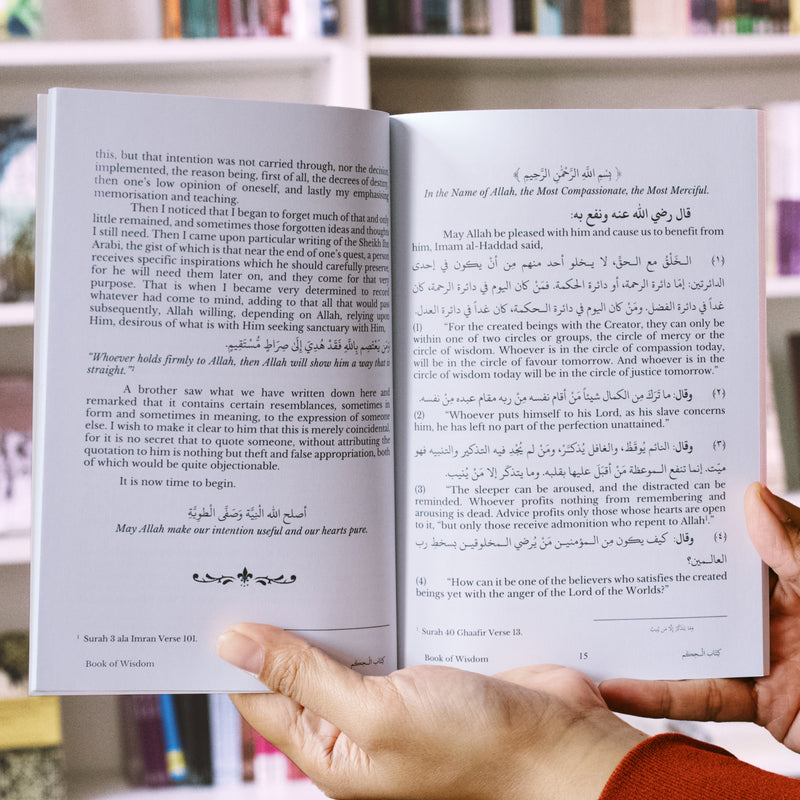 this, but that intention was not carried through, nor the decision
implemented, the reason being, first of all, the decrees of destiny,
then one's low opinion of oneself, and lastly my emphasising
memorisation and teaching.
Then I noticed that I began to forget much of that and only
little remained, and sometimes those forgotten ideas and thoughts
I still need. Then I came upon particular writing of the Sheikh Ibn
Arabi, the gist of which is that near the end of one's quest, a person
receives specific inspirations which he should carefully preserve,
for he will need them later on, and they come for that very
purpose. That is when I became very determined to record
whatever had come to mind, adding to that all that would pass
subsequently, Allah willing, depending on Allah, relying upon
Him, desirous of what is with Him seeking sanctuary with Him,
وَمَن يَعْتَصِم بِاللَّهِ فَقَدْ هُدِيَ إِلَىٰ صِرَاطٍ مُّسْتَقِيمٍ.
"Whoever holds firmly to Allah, then Allah will show him a way that is
straight."¹
A brother saw what we have written down here and
remarked that it contains certain resemblances, sometimes in
form and sometimes in meaning, to the expression of someone
else. I wish to make it clear to him that this is merely coincidental,
for it is no secret that to quote someone, without attributing the
quotation to him is nothing but theft and false appropriation, both
of which would be quite objectionable.
It is now time to begin.
أصلح الله النِيَّة وَصَفَّى الْطوِيَّة
May Allah make our intention useful and our hearts pure.
¹ Surah 3 ala Imran Verse 101.
Book of Wisdom كِتاب الـحكم
﴿ بِسْمِ اللَّهِ الرَّحْمَٰنِ الرَّحِيمِ ﴾
In the Name of Allah, the Most Compassionate, the Most Merciful.
قال رضي الله عنه ونفع به:
May Allah be pleased with him and cause us to benefit from
him, Imam al-Haddad said,
(١) الـخَلْقُ مع الـحقِّ، لا يـخلو أحد منهم مِن أنْ يكون في إحدى
الدائرتين: إمّا دائرة الرحمة، أو دائرة الحكمة. فمَنْ كان اليوم في دائرة الرحمة، كان
غداً في دائرة الفضل. ومَنْ كان اليوم في دائرة الـحكمة، كان غداً في دائرة العدل.
(1) "For the created beings with the Creator, they can only be
within one of two circles or groups, the circle of mercy or the
circle of wisdom. Whoever is in the circle of compassion today,
will be in the circle of favour tomorrow. And whoever is in the
circle of wisdom today will be in the circle of justice tomorrow."
(٢) وقال: ما تَرَكَ مِن الكمال شيئاً مَنْ أقام نفسه مِنْ ربه مقام عبده مِنْ نفسه.
(2) "Whoever puts himself to his Lord, as his slave concerns
him, he has left no part of the perfection unattained."
(٣) وقال: النائم يُوقَظُ، والغافل يُذكَّر، ومَنْ لم يُجْدِ فيه التذكير والتنبيه فهو
ميّت. إنما تنفع الـموعظة مَنْ أقبَلَ عليها بقلبه. وما يتذكّر إلا مَنْ يُنيب.
(3) "The sleeper can be aroused, and the distracted can be
reminded. Whoever profits nothing from remembering and
arousing is dead. Advice profits only those whose hearts are open
to it, "but only those receive admonition who repent to Allah¹."
(٤) وقال: كيف يكون مِن الـمؤمنين مَنْ يُرضي الـمخلوقيـن بسخطِ رب
العالـمين؟
(4) "How can it be one of the believers who satisfies the created
beings yet with the anger of the Lord of the Worlds?"
¹ Surah 40 Ghaafir Verse 13. وَمَا يَتَذَكَّرُ إِلَّا مَن يُنِيبُ
Book of Wisdom 15 كِتاب الـحكم